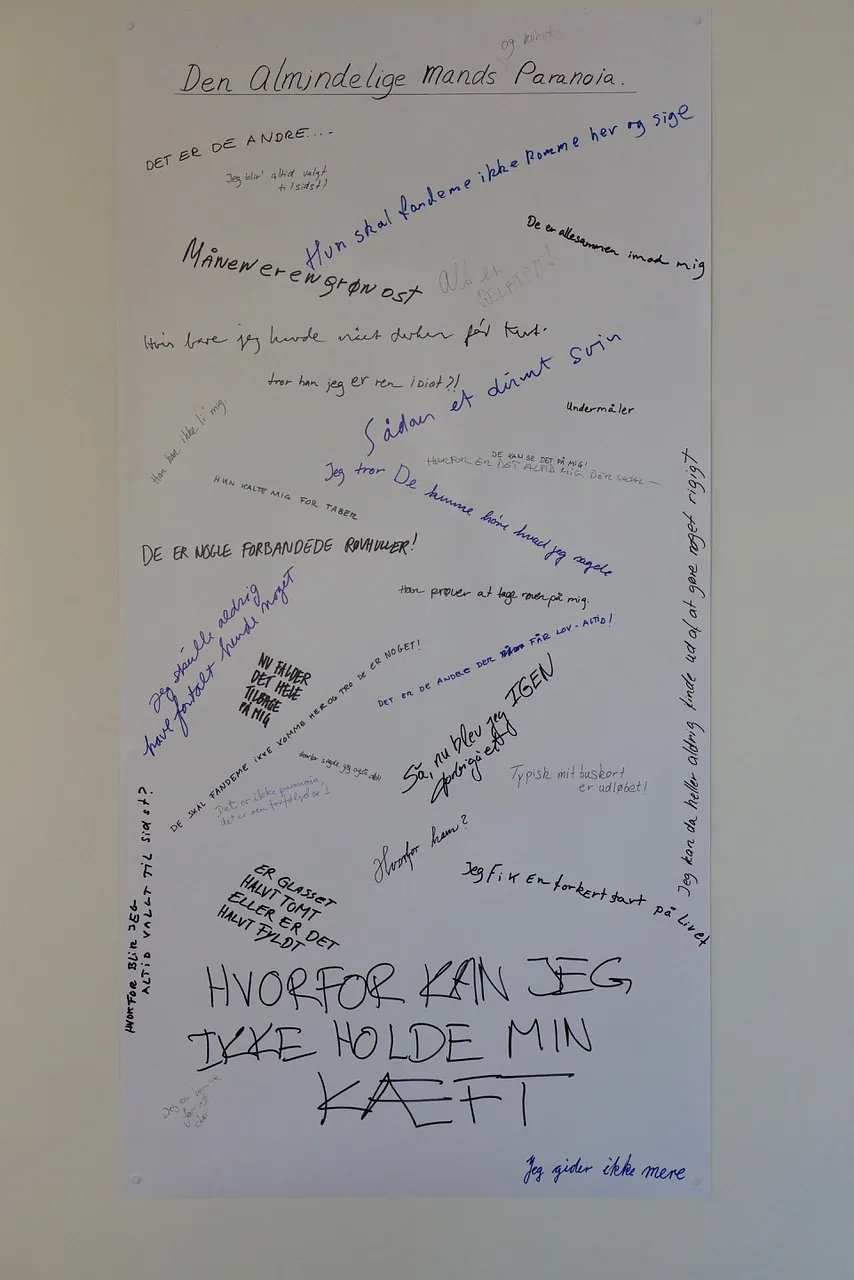 og
Den Almindelige mands Paranoia.
DET ER DE ANDRE....
Jeg blir' altid valgt
til sidst!
Hun skal fandeme ikke komme her og sige
De er allesammen imod mig
MÅNEN ER EN GRØN OST
Alt er
RELATIVT!
Hvis bare jeg havde
tror han jeg er ren idiot?!
Sådan et dumt svin
Undermåler
Han kan ikke li' mig
DE KAN SE DET PÅ MIG!
HVORFOR ER DET ALTID MIG DER SKAL —
Jeg tror De kunne høre hvad jeg sagde
HUN KALTE MIG FOR TABER
DE ER NOGLE FORBANDEDE RØVHULLER!
Han prøver at tage røven på mig.
Jeg skulle aldrig
have fortalt hende noget
NU FALDER
DET HELE
TILBAGE
PÅ MIG
DET ER DE ANDRE DER FÅR LOV - ALTID!
DE SKAL FANDEME IKKE KOMME HER OG TRO DE ER NOGET!
Så, nu blev jeg IGEN
forbigået
hvorfor sagde jeg også det!
Det er ikke paranoia,
det er en forfølgelse!
Typisk mit buskort
er udløbet!
Jeg kan da heller aldrig finde ud af at gøre noget rigigt
Hvorfor ham?
HVORFOR BLIR JEG
ALTID VALGT TIL SIDST?
Jeg Fik En forkert start på Livet
ER GLASSET
HALVT TOMT
ELLER ER DET
HALVT FYLDT
HVORFOR KAN JEG
IKKE HOLDE MIN
KÆFT
Jeg er
Jeg gider ikke mere